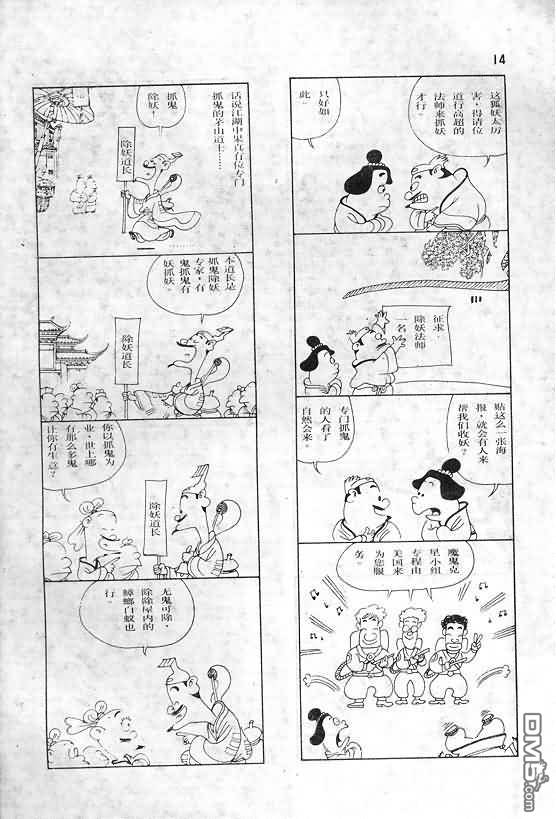 14
这狐妖太厉
害，得请位
道行高超的
法师来抓妖
才行。
只好如
此。
征求：
除妖法师
一名
贴这么一张海
报，就会有人来
帮我们收妖？
专门抓鬼
的人看了
自然会来。
魔鬼克
星小组
专程由
美国来
为您服
务。
话说江湖中果真有位专门
抓鬼的茅山道士……
抓鬼
除妖！
除妖道长
本道长是
抓鬼除妖
专家，有
鬼抓鬼有
妖抓妖。
除妖道长
你以抓鬼为
业，世上哪
有那么多鬼
让你有生意？
除妖道长
无鬼可除，
除除屋内的
蟑螂白蚁也
行。
DM5.com